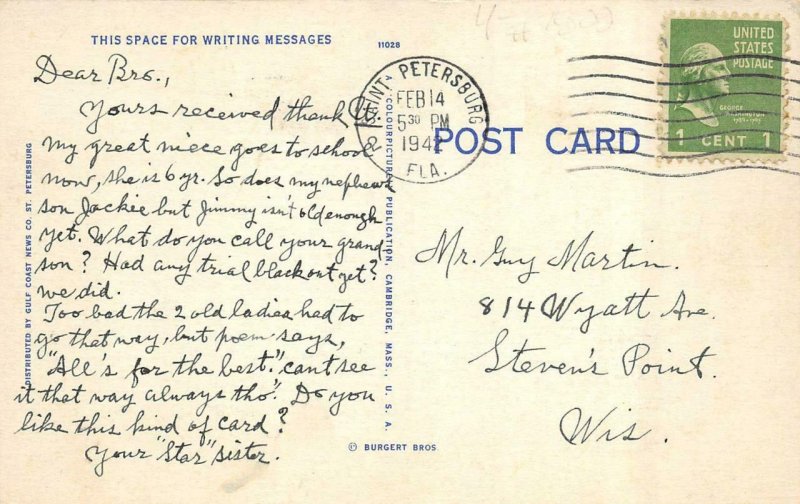 THIS SPACE FOR WRITING MESSAGES
11028
Dear Bro.,
Yours received thank U.
my great niece goes to school
now, she is 6 yr. So does my nephews
son Jackie but Jimmy isn't old enough
yet. What do you call your grand-
son? Had any trial blackout yet?
we did.
Too bad the 2 old ladies had to
go that way, but poem says,
"All's for the best." can't see
it that way always tho'. Do you
like this kind of card?
Your "Star" sister.
DISTRIBUTED BY GULF COAST NEWS CO. ST. PETERSBURG
COLOURPICTURE PUBLICATION, CAMBRIDGE, MASS., U. S. A.
© BURGERT BROS.
SAINT PETERSBURG
FEB 14
5 30 PM
1942
FLA.
POST CARD
UNITED
STATES
POSTAGE
GEORGE
WASHINGTON
1789-1797
1 CENT 1
Mr. Guy Martin.
814 Wyatt Ave.
Steven's Point.
Wis.